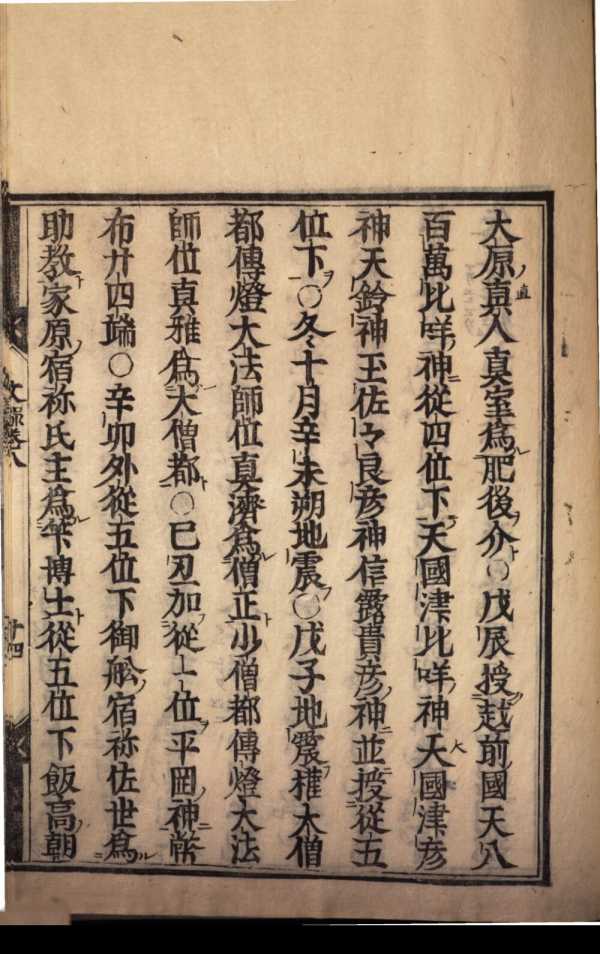 大原真人真室爲肥後介〇戊辰授越前國天八
百萬比咩神從四位下天國津比咩神天國津彦
神天鈴神玉佐々良彦神信露貴彦神並授從五
位下〇冬十月辛未朔地震〇戊子地震權大僧
都傳燈大法師位真濟爲僧正少僧都傳燈大法
師位真雅爲大僧都〇己丑加從一位平岡神幣
布廿四端〇辛卯外從五位下御舩宿祢佐世爲
助教家原宿祢氏主爲笇博士從五位下飯高朝
文録卷八
十四